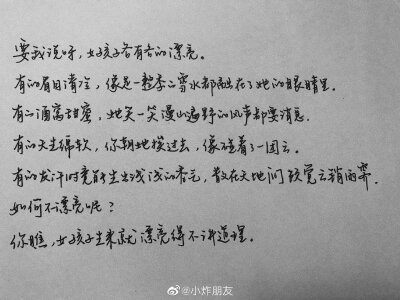 要我说呀，女孩子各有各的漂亮。
有的眉目清冷，像是一整季雪水都融在了她的眼睛里。
有的酒窝甜蜜，她笑一笑漫山遍野的风声都要消息。
有的天生绵软，你朝她挨过去，像碰着了一团云。
有的发汗时竟能生出浅浅的香气，散在天地间顿觉云销雨霁。
如何不漂亮呢？
你瞧，女孩子生来就漂亮得不讲道理。
@小炸朋友